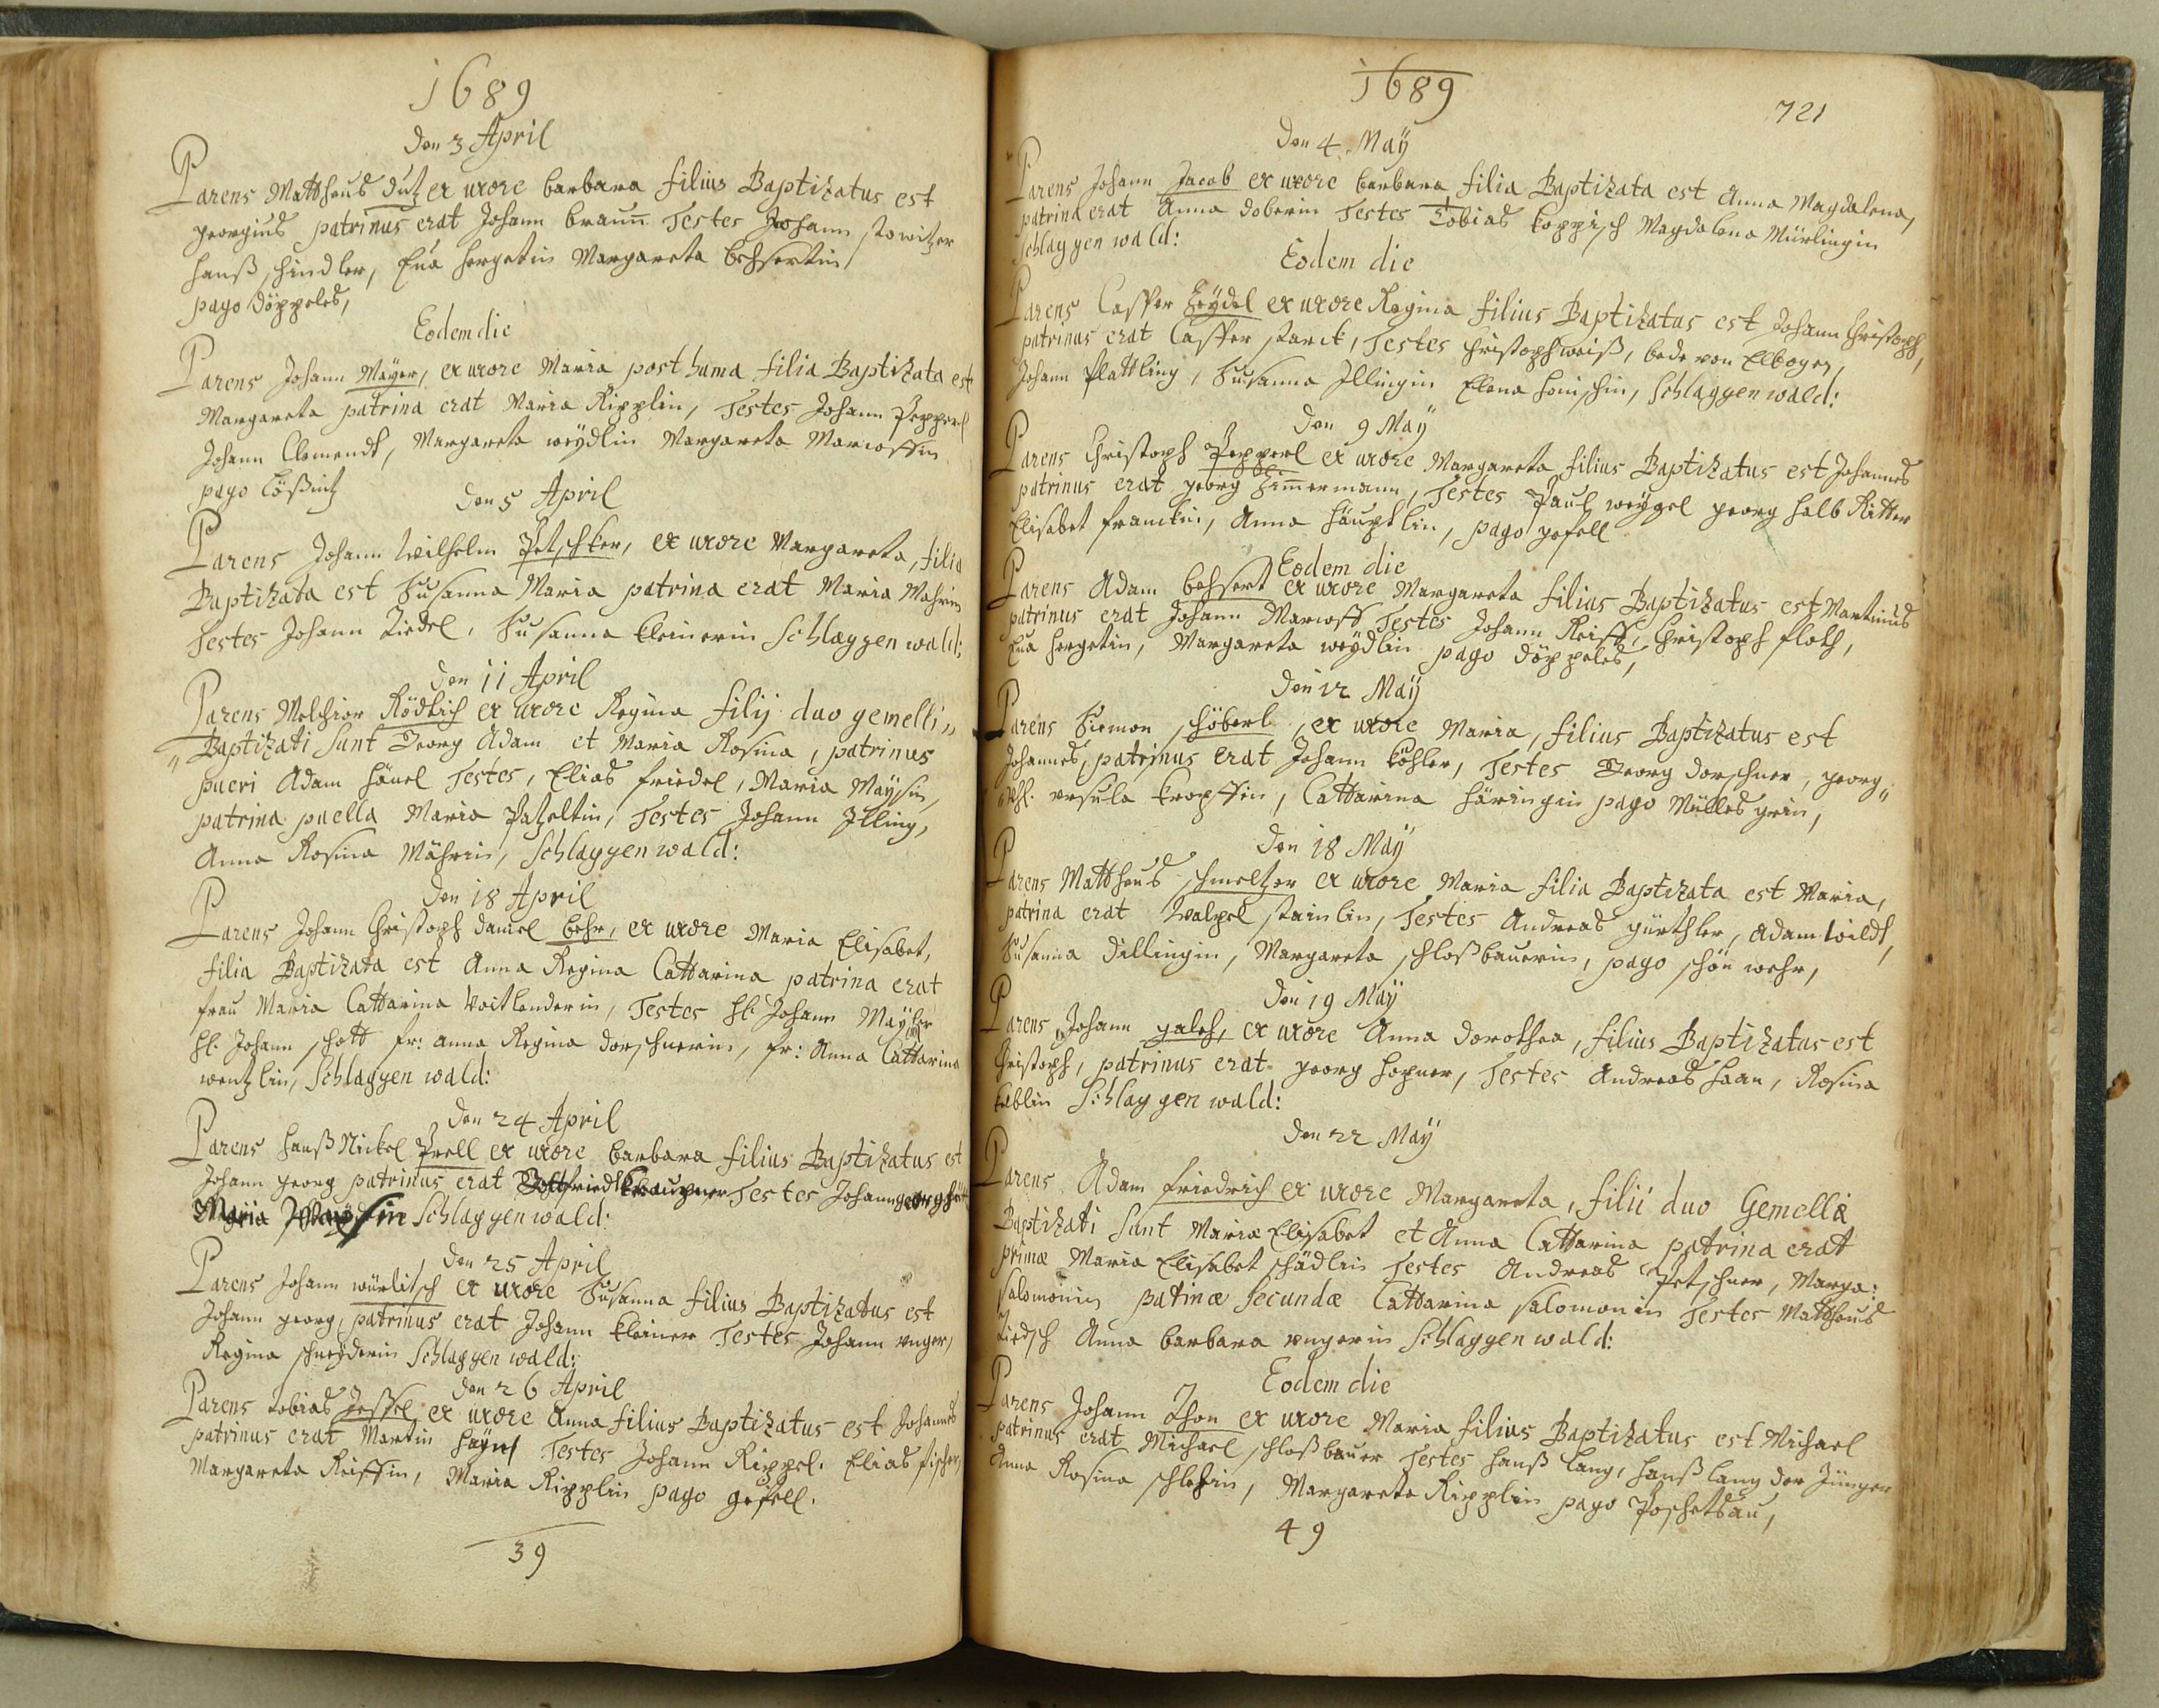 1689
den 3 April
Parens Mattheus Dutz ex uxore barbara filius Baptizatus est
georgius patrinus erat Johann braun Testes Johann stowitzer
hanß hindler, Eua hergetin Margareta behsertin,
pago döppeles,
Eodem die
Parens Johann Mayer, ex uxore Maria posthuma filia Baptizata est
Margareta patrina erat Maria Ripplin, Testes Johann Pepperl
Johann Clement, Margareta weydlin Margareta Marioffin
pago Lößnitz
den 5 April
Parens Johann Wilhelm Petschker, ex uxore Margareta, filia
Baptizata est Susanna Maria patrina erat Maria Mahrin
Testes Johann Riedel, Susanna kleinerin Schlaggenwald:
den 11 April
Parens Melchior Rödlich ex uxore Regina filij duo gemelli„
„Baptizati sunt Georg Adam et Maria Rosina, patrinus
pueri Adam hänel Testes, Elias friedel, Maria Maysin,
patrina puella Maria Patzeltin, Testes Johann Illing,
Anna Rosina Mährin, Schlaggenwald:
den 18 April
Parens Johann Christoph daniel behr, ex uxore Maria Elisabet,
filia Baptizata est Anna Regina Cattarina patrina erat
frau Maria Cattarina Voitlenderin, Testes hl: Johann Mayer
hl: Johann schott fr: anna Regina dorschnerin, fr: Anna Cattarina
wentzlin, Schlaggenwald:
den 24 April
Parens hanß Nickel Prell ex uxore barbara filius Baptizatus est
Johann georg patrinus erat Gottfried kraupner Testes Johann georg
Maria Schlaggenwald:
den 25 April
Parens Johann würlitsch ex uxore Susanna filius Baptizatus est
Johann georg, patrinus erat Johann kleiner Testes Johann unger,
Regina schneyderin Schlaggenwald:
den 26 April
Parens tobias Jessel ex uxore Anna filius Baptizatus est Johannes
patrinus erat Martin hayn Testes Johann Rippel. Elias fischer,
Margareta Reiffin, Maria Ripplin pago gefell.
39
1689
721
den 4 May
Parens Johann Jacob ex uxore barbara filia Baptizata est Anna Magdalena,
patrina erat Anna doberin Testes Tobias koppisch Magdalena Mürlingin
Schlaggenwald:
Eodem die
Parens Casper heydel ex uxore Regina filius Baptizatus est Johann Christoph,
patrinus erat Casper starck, Testes Christoph weiß, bede von Elbogen,
Johann plattling, Susanna Illingin Elena honischin, Schlaggenwald:
den 9 May
Parens Christoph Pepperl ex uxore Margareta filius Baptizatus est Johannes
patrinus erat georg Zimmermann, Testes Paul weygel georg halb Ritter
Elisabet franckin, Anna häuptlin, pago gefell
Eodem die
Parens Adam behsert ex uxore Margareta filius Baptizatus est Martinus
patrinus erat Johann Marioff Testes Johann Reiff, Christoph floth,
Eua hergetin, Margareta weydlin pago döppeles,
den 12 May
Parens Simon schöberl, ex uxore Maria, filius Baptizatus est
Johannes, patrinus erat Johann köhler, Testes Georg dorschner, georg„
ursula kropffin, Cattarina häringin pago Mülles grün,
den 18 May
Parens Mattheus schmeltzer ex uxore Maria filia Baptizata est Maria,
patrina erat Walpel stainlin, Testes Andreas gürthler, Adam wildt,
Susanna dillingin, Margareta schloßbauerin, pago schön wehr,
den 19 May
Parens Johann galeh, ex uxore Anna dorothea, filius Baptizatus est
Christoph, patrinus erat georg hopner, Testes Andreas haan, Rosina
Schlaggenwald:
den 22 May
Parens Adam friedrich ex uxore Margareta, filii duo Gemellæ
Baptizati sunt Maria Elisabet et Anna Cattarina patrina erat
primæ Maria Elisabet schädlin Testes Andreas Petschner, Marga:
salomonin patrinæ secundæ Cattarina salomonin Testes Mattheus
Anna barbara ungerin Schlaggenwald:
Eodem die
Parens Johann Thon ex uxore Maria filius Baptizatus est Michael
patrinus erat Michael schloßbauer Testes hanß Lang, hanß lang der Jünger
Anna Rosina Margareta Ripplin pago Poschetsau,
49